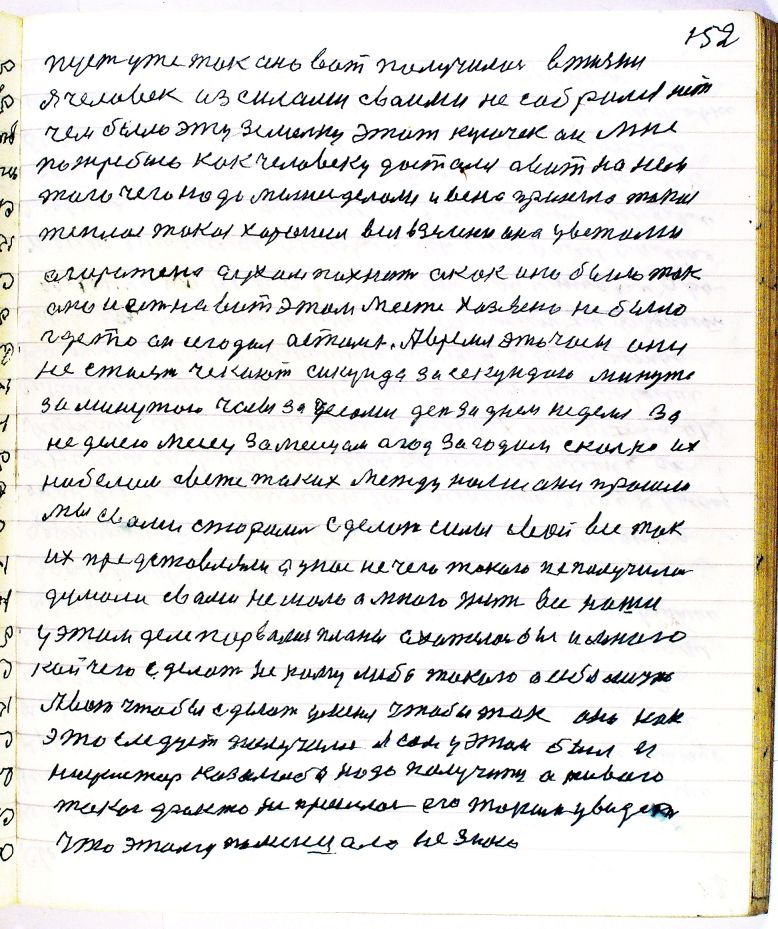 152
пуст уже так оно вот получилос в жизни
я человек из силами своими не собралися нет
чем было эту земельку этот кусочек он мне
по жребию как человеку достался а вот на нем
того чего надо мы не делали и весна пришла такая
теплая такая хорошая вся в зелени она цветами
духом пахнит а как оно было так
оно и есть на вот этом месте хозяено не было
где то он сегодня остался. А время эти часы они
не стоят чекают сикунда за секундою минута
за минутою часы за часами ден за днем неделя за
неделею месец за месецам а год за годом сколко их
на белом свете таких между нами они прошло
мы своими старалися сделат сили свои все так
их представляли а у нас не чего такого не получилос
думали своми не мало а много жит все наши
у этом деле порвалися планы а хотелос бы и много
кой чего сделат не кому либо такого а себя лично
А вот чтобы сделат у меня чтобы так оно как
это следует получилос я сам у этом был и
казалос бы надо получит а живого
такого факта не пришлос его таким увидет
что этому помешало не знаю